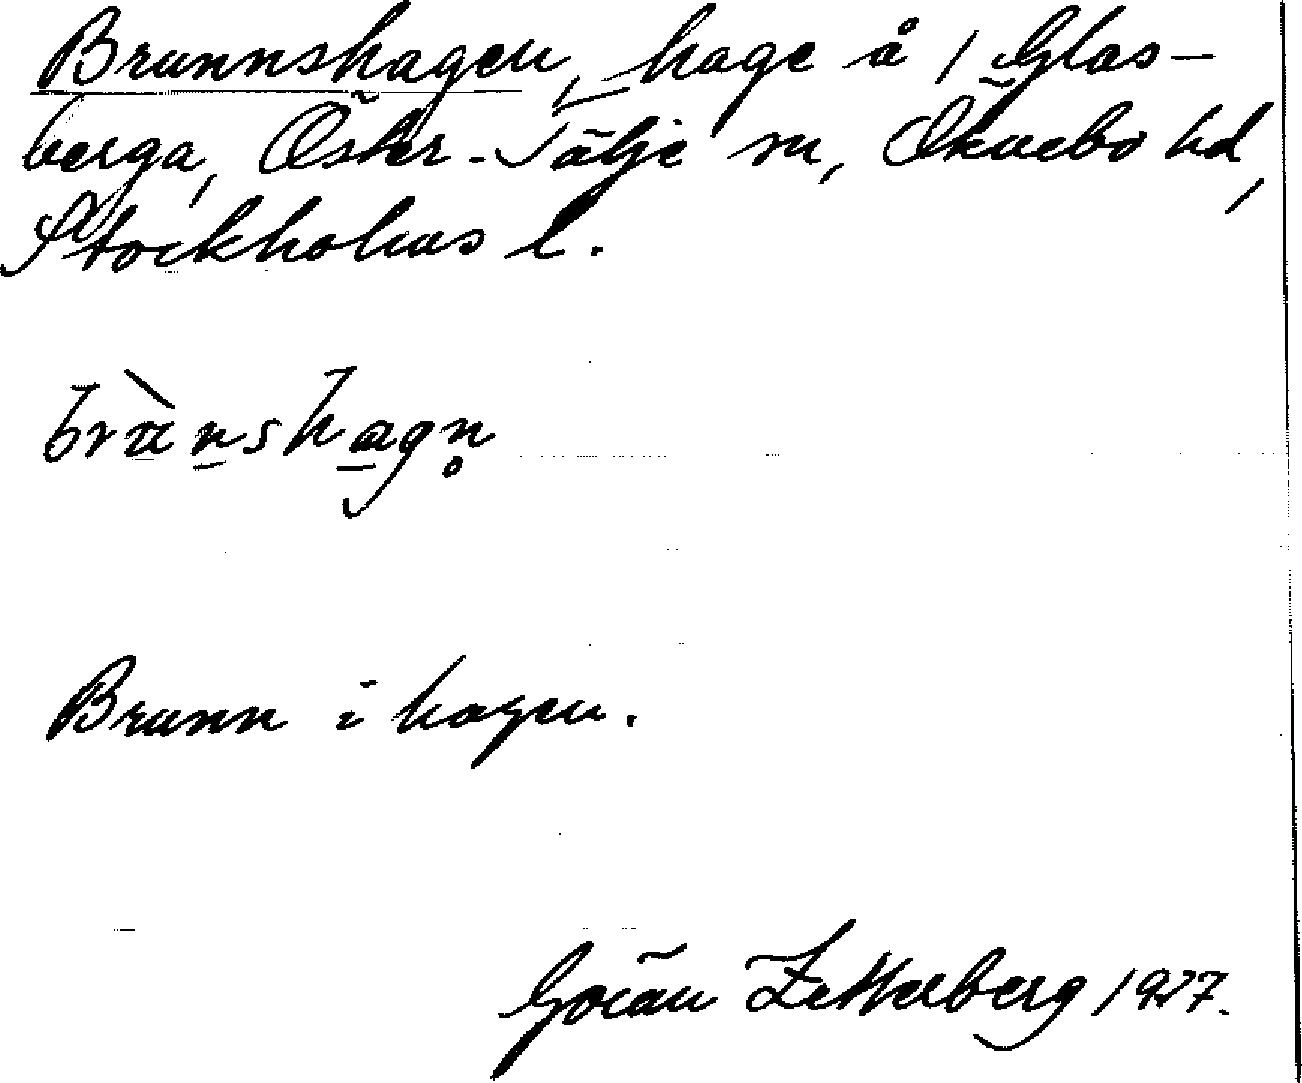 Brunnshagen, hage å 1 Glas-
berga, Öster-Tälje sn, Öknebo hd,
Stockholms l.
Brunn i hagen.
Göran Zetterberg 1927.